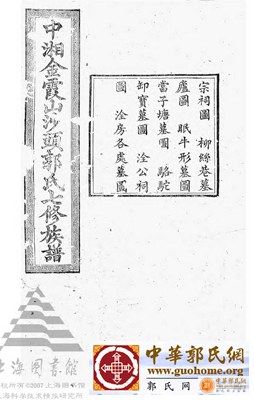 中湘金霞山沙頭郭氏七修族譜
宗祠圖　柳絲巷墓
廬圖　眠牛形墓圖
當子塘墓圖　駱駝
卸寶墓圖　淦公祠
圖　淦房各處墓圖
上海圖書館
权所有©2007上海图书馆
上海科学技术情报研究所
中華郭氏網
www.guohome.org
郭 氏 网
中華郭氏網